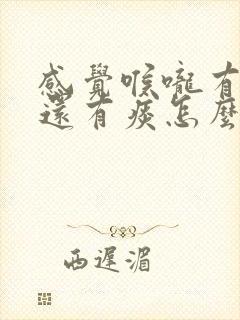 感覺喉嚨有
還有痰怎麼
西遲湄